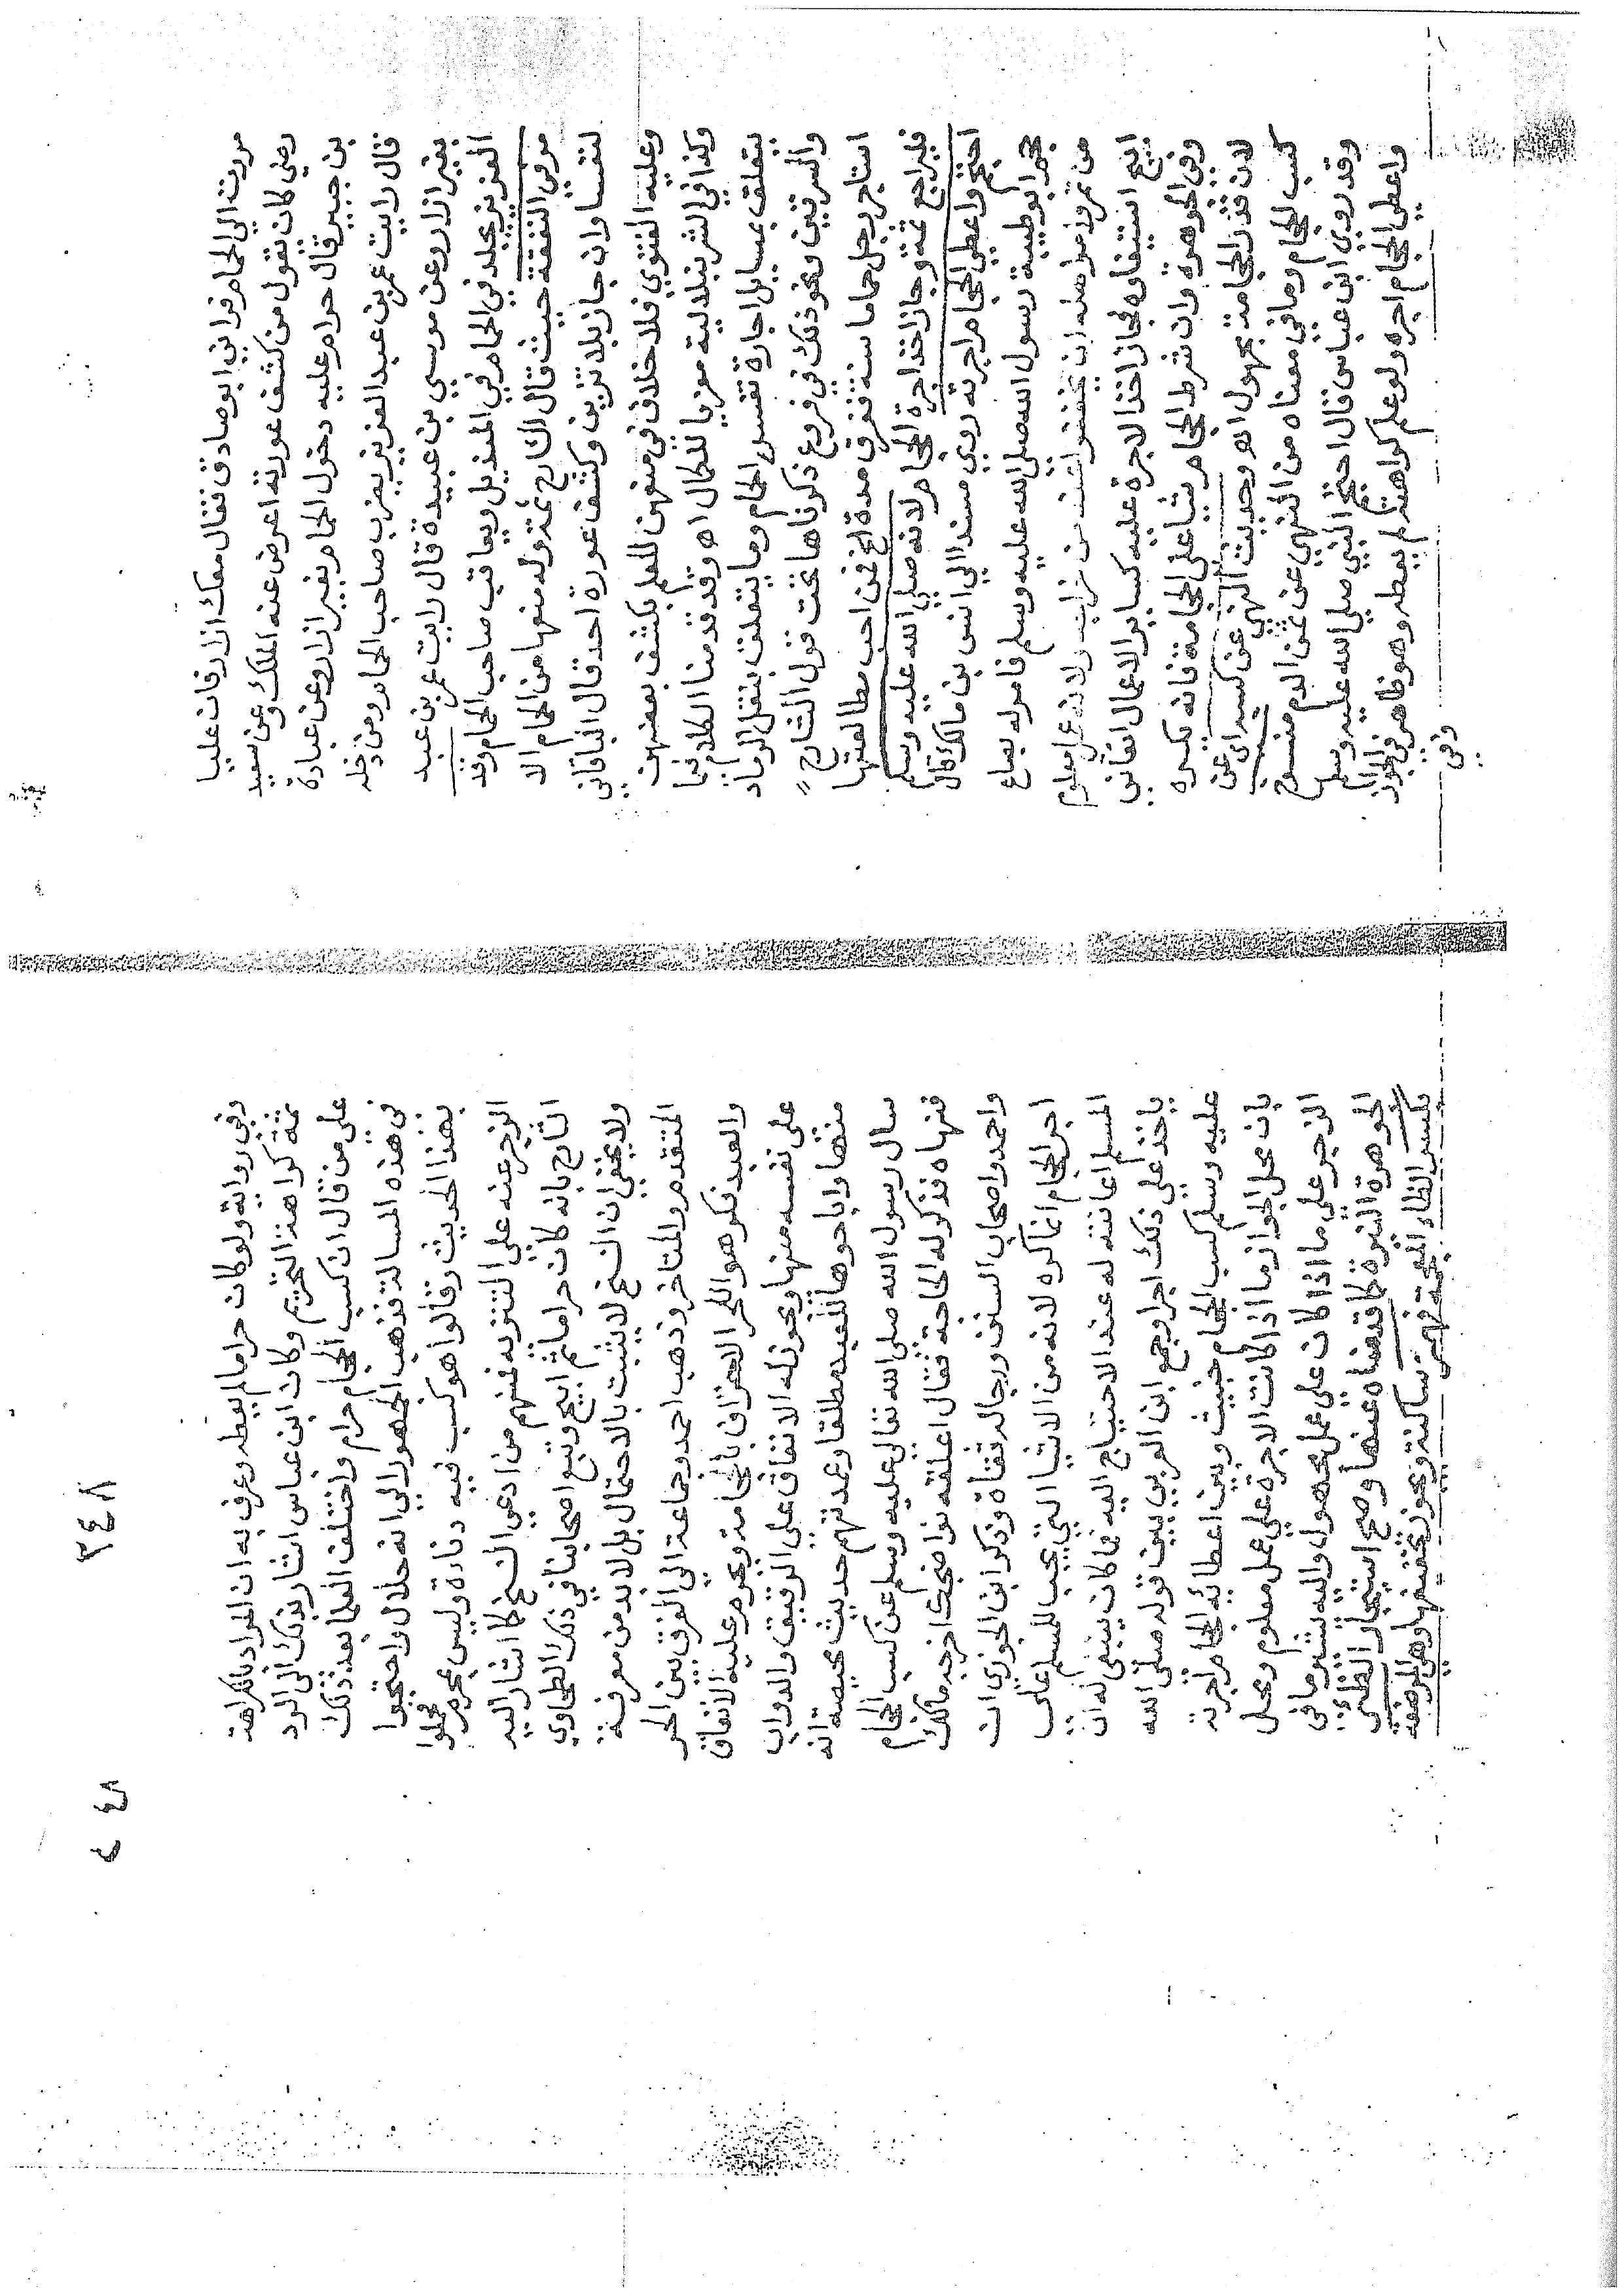 مررت الي الحمام فراني ابو صادق فقال معك ازار فان عليا
رضي كان يقول من كشف عورته اعرض عنه الملك وعن سعيد
بن جبير قال حرام عليه دخول الحمام بغير ازار وعن عبادة
قال رايت عمر بن عبد العزيز يضرب صاحب الحمام ومن دخله
بغير ازار وعن موسي بن عبيدة قال رايت عمر بن عبد
العزيز يجلد في الحمام في المنديل ويعاقب صاحب الحمام وقد
مر في النفقة حيث قال الشارح ثمة وله منعها من الحمام الا
لنفسا وان جاز بلا تزين وكشف عورة احد قال الباقاني
وعليه الفتوي فلا خلاف في منعهن للعلم بكشف بعضهن
وكذا في الشرنبلالية معزيا للكمال اه وقد قدمنا الكلام فيما
يتعلق بمسايل اجارة نفس الحمام وما يتعلق بنقل الرماد
والسرقين ونحو ذلك في فروع ذكرناها تحت قول الشارح
استاجر رجل حماما سنة فغرق مدة الخ فمن احب مطالعتها
فليراجع ثمة وجاز اخذ اجرة الحجام لانه صلي الله عليه وسلم
احتجم واعطي الحجام اجرته روي مسندا الي انس بن مالك قال
حجم ابو طيبة رسول الله صلي الله عليه وسلم فامر له بصاع
من تمر وامر اهله ان يخففوا عنه من خراجه ولانه عمل معلوم
ابيح استيفاوه فجاز اخذ الاجرة عليه كساير الاعمال اتقاني
وفي الجوهرة وان شرط الحجام شيا علي الحجامة فانه يكره
لان قدر الحجامة مجهول اه وحديث النهي عن كسبه اي عن
كسب الحجام وما في معناه من النهي عن ثمن الدم منسوخ
وقد روي ابن عباس قال احتجم النبي صلي الله عليه وسلم
واعطي الحجام اجره ولو علم كراهته لم يعطه وهو ظاهر في الجواز
وفي
٣٤٨
وفي رواية ولو كان حراما لم يعطه وعرف به ان المراد بالكراهة
ثمة كراهة التحريم وكان ابن عباس اشار بذلك الي الرد
علي من قال ان كسب الحجام حرام واختلف العلما بعد ذلك
في هذه المسالة فذهب الجمهور الي انه حلال واحتجوا
بهذا الحديث وقالوا هو كسب فيه دناءة وليس بمحرم فحملوا
الزجر عنه علي التنزيه فمنهم من ادعي النسخ كما اشار اليه
الشارح بانه كان حراما ثم ابيح وتبع اصحابنا في ذلك الطحاوي
ولا يخفي ان النسخ لا يثبت بالاحتمال بل لا بد من معرفة
المتقدم والمتاخر وذهب احمد وجماعة الي الفرق بين الحر
والعبد فكرهوا للحر الاحتراف بالحجامة ويحرم عليه الانفاق
علي نفسه منها ويجوز له الانفاق علي الرقيق والدواب
منها واباحوها للعبد مطلقا وعمدتهم حديث محيصة انه
سال رسول الله صلي الله تعالي عليه وسلم عن كسب الحجام
فنهاه فذكر له الحاجة فقال اعلفه نواضحك اخرجه مالك
واحمد واصحاب السنن ورجاله ثقاة وذكر ابن الجوزي ان
اجر الحجام انما كره لانه من الاشيا التي يجب للمسلم علي
المسلم اعانته له عند الاحتياج اليه فما كان ينبغي له ان
ياخذ علي ذلك اجرا وجمع ابن العربي بين قوله صلي الله
عليه وسلم كسب الحجام خبيث وبين اعطائه الحجام اجرته
بان محل الجواز ما اذا كانت الاجرة علي عمل معلوم ومحل
الزجر علي ما اذا كان علي عمل مجهول واليه يشير ما في
الجوهرة النيرة كما قدمناه عنها وصح استيجار الظئر
بكسر الظاء المعجمة فهمزة ساكنة ويجوز تخفيفها وهي المرضعة